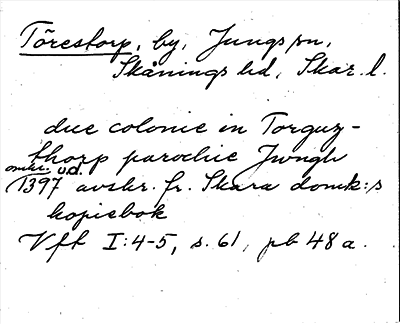 Törestorp, by, Jungs sn,
Skånings hd, Skar. l.
due colonie in Torguz-
thorp parochie Jwngh
omkr. u.d.
1397 avskr. fr. Skara domk:s
kopiebok
Vft I:4-5, s. 61, pb 48 a.